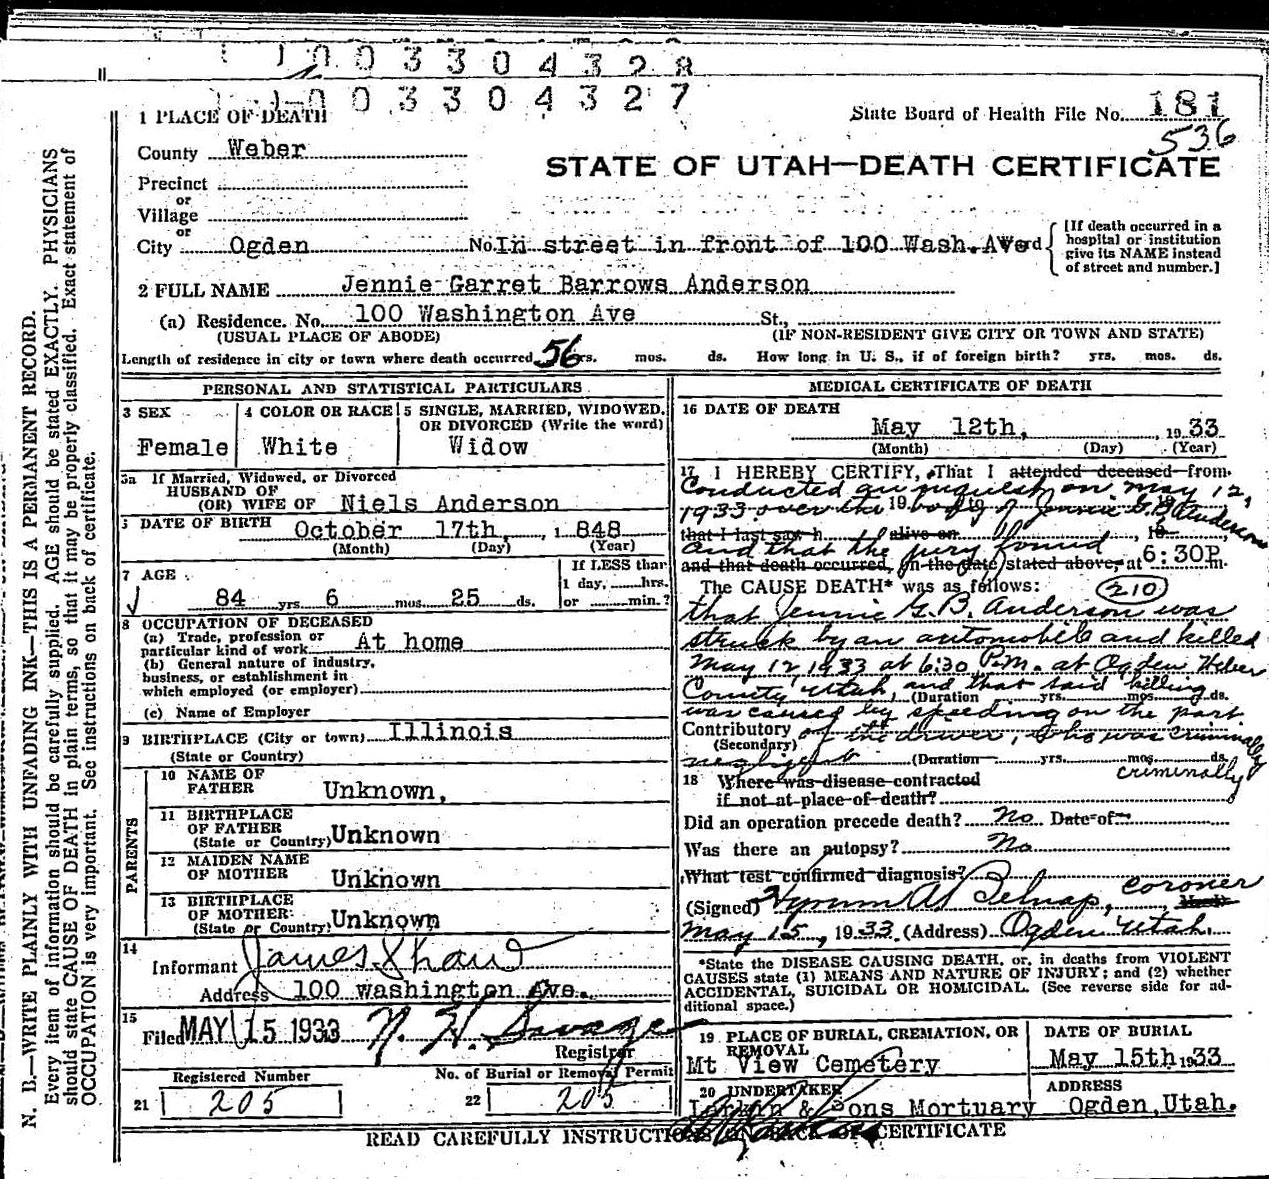 1 0 0 3 3 0 4 3 2 8
1 0 0 3 3 0 4 3 2 7
State Board of Health File No. 181
536
STATE OF UTAH—DEATH CERTIFICATE
1 PLACE OF DEATH
County Weber
Precinct
or
Village
or
City Ogden No. In street in front of 100 Wash. Ave
[If death occurred in a hospital or institution give its NAME instead of street and number.]
2 FULL NAME Jennie Garret Barrows Anderson
(a) Residence. No. 100 Washington Ave St.,
(USUAL PLACE OF ABODE) (IF NON-RESIDENT GIVE CITY OR TOWN AND STATE)
Length of residence in city or town where death occurred 56 yrs. mos. ds. How long in U. S., if of foreign birth? yrs. mos. ds.
PERSONAL AND STATISTICAL PARTICULARS
3 SEX
Female
4 COLOR OR RACE
White
5 SINGLE, MARRIED, WIDOWED,
OR DIVORCED (Write the word)
Widow
5a If Married, Widowed, or Divorced
HUSBAND OF
(OR) WIFE OF Niels Anderson
DATE OF BIRTH October 17th, 1848
(Month) (Day) (Year)
7 AGE
84 yrs 6 mos. 25 ds.
If LESS than
1 day, hrs.
or min.?
8 OCCUPATION OF DECEASED
(a) Trade, profession or
particular kind of work At home
(b) General nature of industry,
business, or establishment in
which employed (or employer)
(c) Name of Employer
9 BIRTHPLACE (City or town) Illinois
(State or Country)
PARENTS
10 NAME OF
FATHER Unknown,
11 BIRTHPLACE
OF FATHER
(State or Country) Unknown
12 MAIDEN NAME
OF MOTHER Unknown
13 BIRTHPLACE
OF MOTHER
(State or Country) Unknown
14
Informant James Shaw
Address 100 washington Ave.
15
Filed MAY 15 1933 N. H. Savage
Registrar
Registered Number
21 205
No. of Burial or Removal Permit
22 205
MEDICAL CERTIFICATE OF DEATH
16 DATE OF DEATH
May 12th, 1933
(Month) (Day) (Year)
17 I HEREBY CERTIFY, That I attended deceased from
Conducted an inquest on May 12,
1933 over the body of Jennie G. B. Anderson
that I last saw h alive on , 19
and that the jury found
and that death occurred, on the date stated above, at 6:30P m.
The CAUSE DEATH* was as follows: 210
that Jennie G. B. Anderson was
struck by an automobile and killed
May 12, 1933 at 6:30 P.M. at Ogden Weber
County, Utah, and that said killing
(Duration yrs. mos. ds.
was caused by speeding on the part
Contributory of the driver, who was criminally
(Secondary)
negligent (Duration yrs. mos. ds.
criminally
18 Where was disease contracted
if not at place of death?
Did an operation precede death? No Date of
Was there an autopsy? No
What test confirmed diagnosis?
(Signed) Hyrum A Belnap, coroner
May 15, 1933 (Address) Ogden Utah.
*State the DISEASE CAUSING DEATH, or, in deaths from VIOLENT
CAUSES state (1) MEANS AND NATURE OF INJURY; and (2) whether
ACCIDENTAL, SUICIDAL OR HOMICIDAL. (See reverse side for ad-
ditional space.)
19 PLACE OF BURIAL, CREMATION, OR
REMOVAL
Mt View Cemetery
DATE OF BURIAL
May 15th 1933
20 UNDERTAKER
& Sons Mortuary
ADDRESS
Ogden, Utah.
READ CAREFULLY INSTRUCTIONS ON BACK OF CERTIFICATE
N. B.—WRITE PLAINLY WITH UNFADING INK—THIS IS A PERMANENT RECORD.
Every item of information should be carefully supplied. AGE should be stated EXACTLY. PHYSICIANS
should state CAUSE OF DEATH in plain terms, so that it may be properly classified. Exact statement of
OCCUPATION is very important. See instructions on back of certificate.